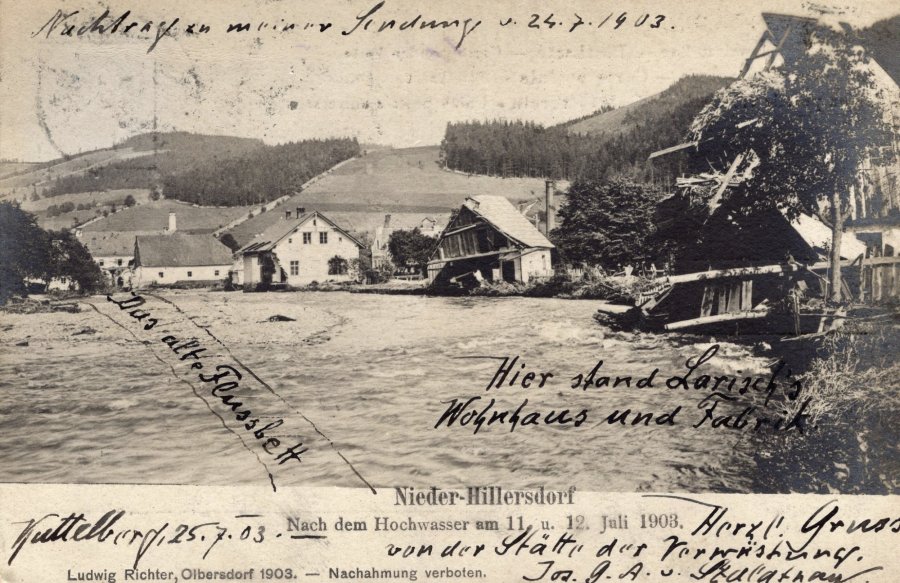 Nachtrag zu meiner Sendung v. 24.7.1903.
Das alte Flussbett
Hier stand Larisch's
Wohnhaus und Fabrik
Nieder-Hillersdorf
Nach dem Hochwasser am 11. u. 12. Juli 1903.
Kuttelberg, 25.7.03.
Herzl. Gruss
von der Stätte der Verwüstung.
Jos. G. A. v.
Ludwig Richter, Olbersdorf 1903. — Nachahmung verboten.